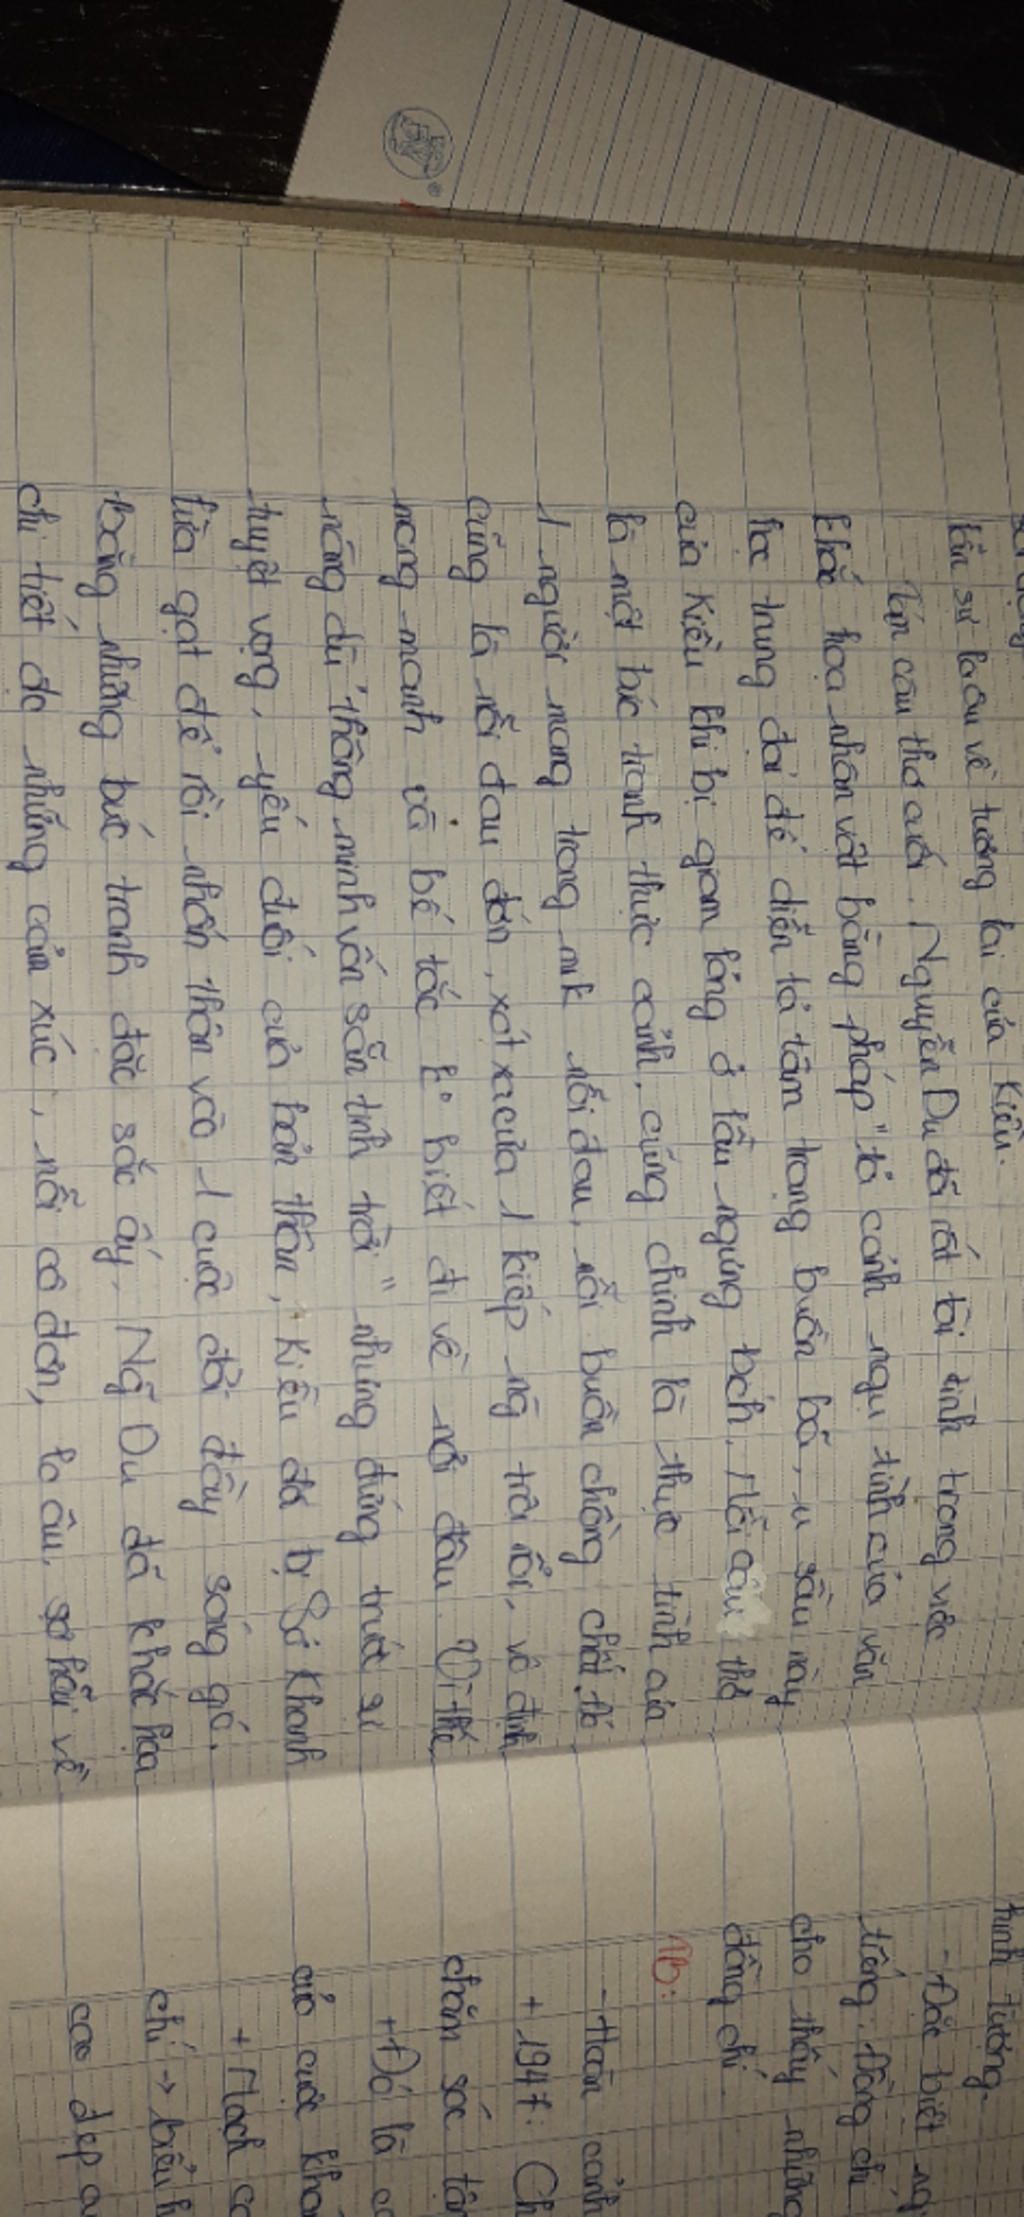 lần sự lo âu về tương lai của Kiều.
Tám câu thơ cuối. Nguyễn Du đã rất tài tình trong việc
khắc họa nhân vật bằng pháp "tả cảnh ngụ tình của văn
học trung đại để diễn tả tâm trạng buồn bã, u sầu này
của Kiều khi bị giam lỏng ở lầu ngưng bích. Mỗi câu thơ
là một bức tranh thực cảnh, cũng chính là thực tình của
1 người mang trong mk nỗi đau, nỗi buồn chồng chất. Đó
cũng là nỗi đau đớn, xót xa của 1 kiếp ng trôi nổi, vô định
mong manh và bế tắc ko biết đi về nơi đâu. Vì thế,
nàng dù "thông minh vốn sẵn tính trời" nhưng đứng trước sự
tuyệt vọng, yếu đuối của bản thân, Kiều đã bị Sở Khanh
lừa gạt để rồi nhấn thân vào 1 cuộc đời đầy sóng gió.
Bằng những bức tranh đặc sắc ấy, Ng Du đã khắc họa
chi tiết đc những cảm xúc, nỗi cô đơn, lo âu, sợ hãi về
hình tượng.
- Đặc biệt ng
tiếng: Đồng chí
cho thấy những
đồng chí.
TB:
- Hoàn cảnh
+ 1947: Ch
chăm sóc tận
+ Đó là
của cuộc
+ Mạch
chí → biểu h
cao đẹp